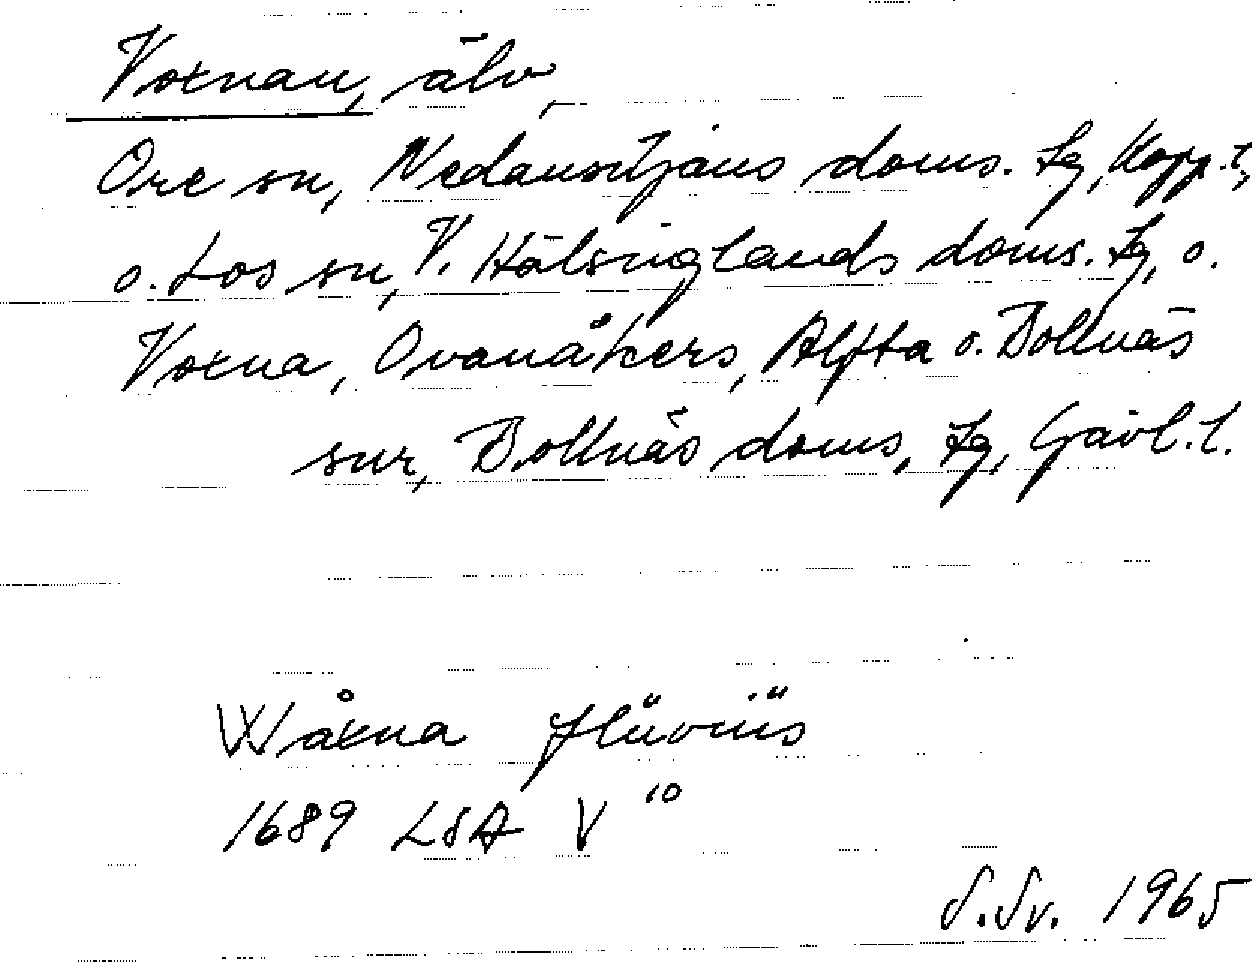 Voxnan, älv,
Ore sn, Nedansiljans doms. Lg, Kopp. l,
o. Los sn, V. Hälsinglands doms. Lg, o.
Voxna, Ovanåkers, Alfta o. Bollnäs
snr, Bollnäs doms. Lg, Gävl. l.
Wåxna flüviüs
1689 LSA V 10
S. Sv. 1965